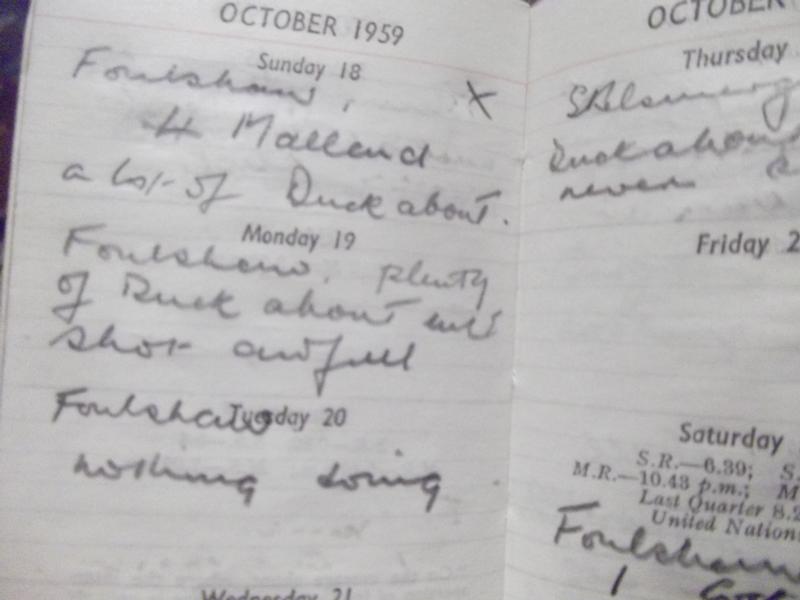 OCTOBER 1959
Sunday 18
Foulshaw, X
4 Mallard
a lot of Duck about.
Monday 19
Foulshaw. plenty
of Duck about but
shot awfull
Tuesday 20
Foulshaw
nothing doing
Wednesday 21
OCTOBER
Thursday
Duck about
never
Friday 2
Saturday
S.R.—6.39; S.
M.R.—10.43 p.m.; M
Last Quarter 8.2
United Nation
Foulshaw
1